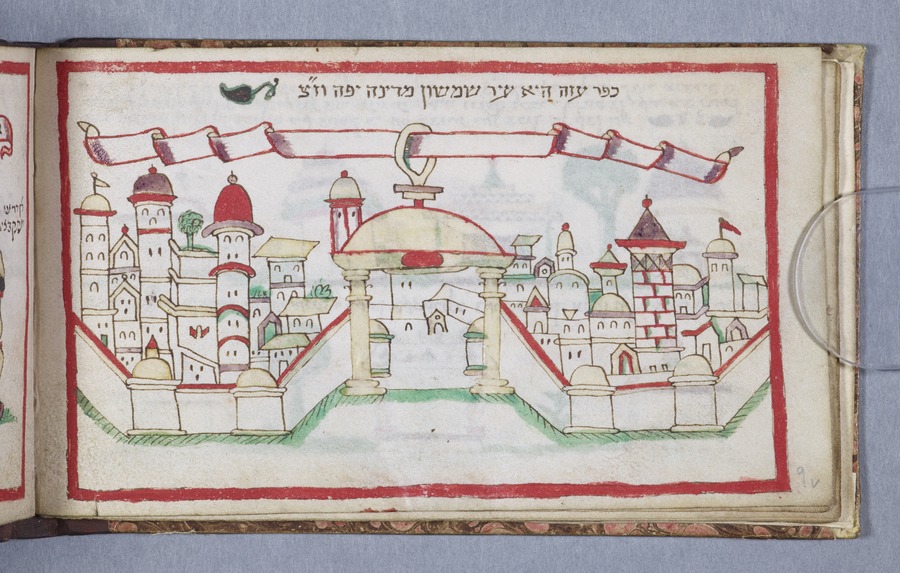 כפר עזה היא עיר שמשון מדינה יפה וז״צ
9v